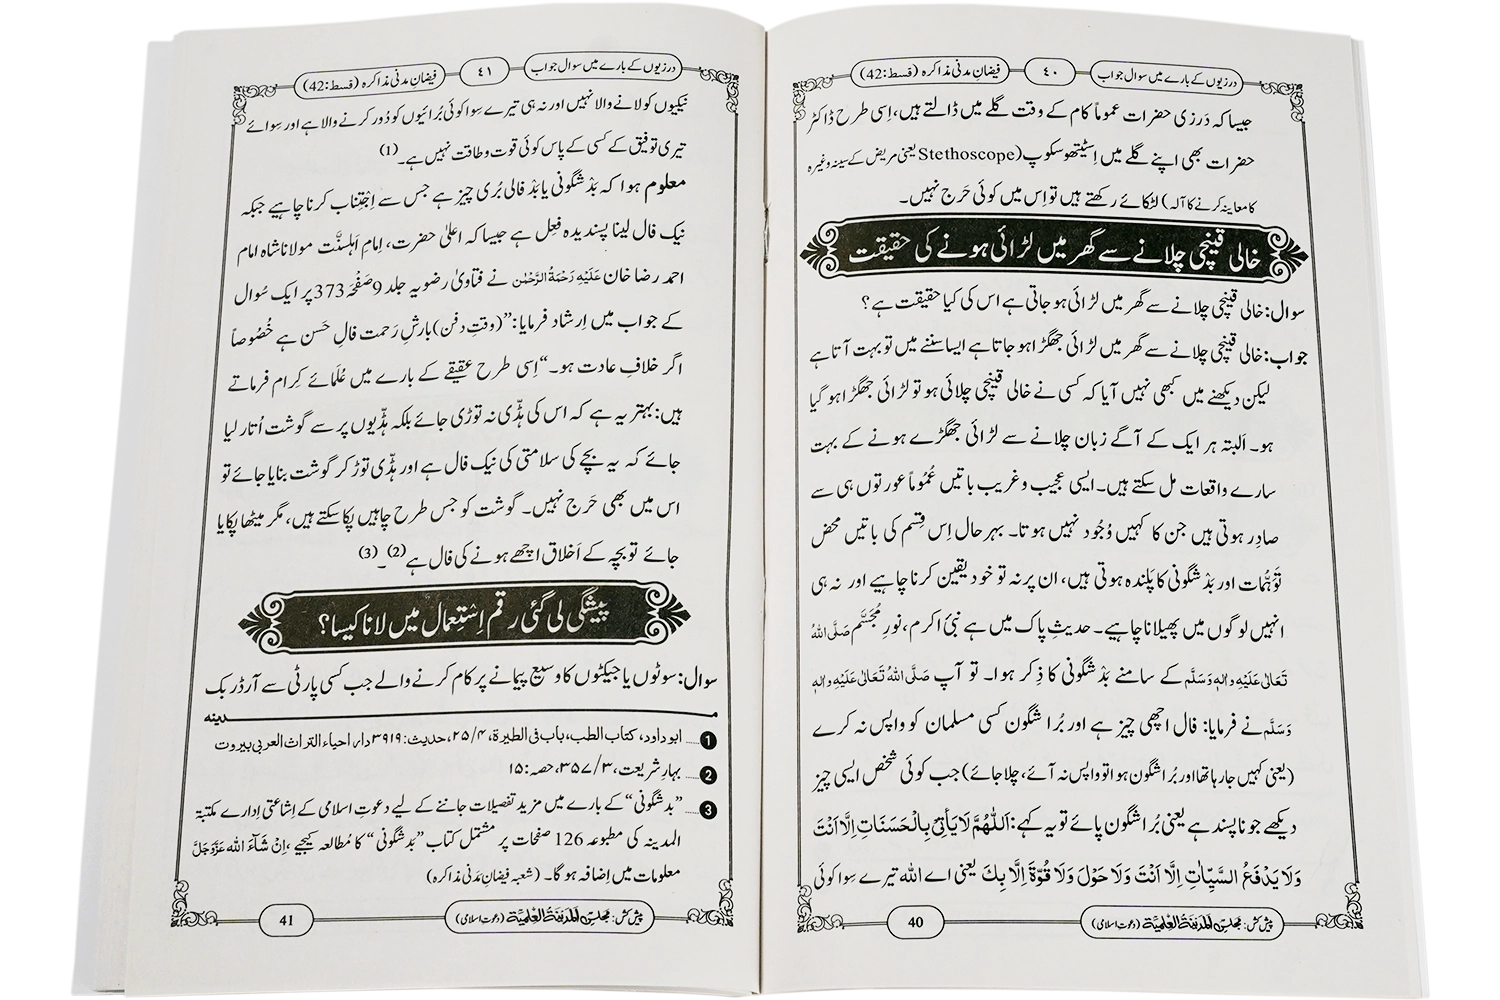 درزیوں کے بارے میں سوال جواب ٤٠ فیضانِ مدنی مذاکرہ (قسط:42)
جیسا کہ دَرزی حضرات عموماً کام کے وقت گلے میں ڈالتے ہیں، اِسی طرح ڈاکٹر
حضرات بھی اپنے گلے میں اِسٹیتھو سکوپ (Stethoscope یعنی مریض کے سینہ وغیرہ
کا معاینہ کرنے کا آلہ) لٹکائے رکھتے ہیں تو اِس میں کوئی حَرج نہیں۔
خالی قینچی چلانے سے گھر میں لڑائی ہونے کی حقیقت
سوال: خالی قینچی چلانے سے گھر میں لڑائی ہو جاتی ہے اس کی کیا حقیقت ہے؟
جواب: خالی قینچی چلانے سے گھر میں لڑائی جھگڑا ہو جاتا ہے ایسا سننے میں تو بہت آتا ہے
لیکن دیکھنے میں کبھی نہیں آیا کہ کسی نے خالی قینچی چلائی ہو تو لڑائی جھگڑا ہو گیا
ہو۔ اَلبتہ ہر ایک کے آگے زبان چلانے سے لڑائی جھگڑے ہونے کے بہت
سارے واقعات مل سکتے ہیں۔ ایسی عجیب و غریب باتیں عُمُوماً عورتوں ہی سے
صادِر ہوتی ہیں جن کا کہیں وُجُود نہیں ہوتا۔ بہر حال اِس قِسم کی باتیں محض
تَوَہُّمات اور بَدشگونی کا پلندہ ہوتی ہیں، ان پر نہ تو خود یقین کرنا چاہیے اور نہ ہی
انہیں لوگوں میں پھیلانا چاہیے۔ حدیثِ پاک میں ہے نبیِّ اکرم، نورِ مُجَسَّم صَلَّی اللہُ
تَعَالٰی عَلَیْہِ واٰلِہٖ وَسَلَّم کے سامنے بَدشگونی کا ذِکر ہوا۔ تو آپ صَلَّی اللہُ تَعَالٰی عَلَیْہِ واٰلِہٖ
وَسَلَّم نے فرمایا: فال اچھی چیز ہے اور بُرا شگون کسی مسلمان کو واپس نہ کرے
(یعنی کہیں جا رہا تھا اور بُرا شگون ہوا تو واپس نہ آئے، چلا جائے) جب کوئی شخص ایسی چیز
دیکھے جو ناپسند ہے یعنی بُرا شگون پائے تو یہ کہے: اَللّٰهُمَّ لَا يَأْتِيْ بِالْحَسَنَاتِ اِلَّا اَنْتَ
وَلَا يَدْفَعُ السَّيِّاٰتِ اِلَّا اَنْتَ وَلَا حَوْلَ وَلَا قُوَّةَ اِلَّا بِكَ یعنی اے اللہ تیرے سِوا کوئی
پیش کش: مجلس اَلمدینۃ العلمیۃ (دعوتِ اسلامی) 40
درزیوں کے بارے میں سوال جواب ٤١ فیضانِ مدنی مذاکرہ (قسط:42)
نیکیوں کو لانے والا نہیں اور نہ ہی تیرے سِوا کوئی بُرائیوں کو دُور کرنے والا ہے اور سِوائے
تیری توفیق کے کسی کے پاس کوئی قوت و طاقت نہیں ہے۔ (1)
معلوم ہوا کہ بَدشگونی یا بَدفالی بُری چیز ہے جس سے اِجْتِناب کرنا چاہیے جبکہ
نیک فال لینا پسندیدہ فِعل ہے جیسا کہ اعلیٰ حضرت، اِمامِ اَہلسنَّت مولانا شاہ امام
احمد رضا خان عَلَیْہِ رَحْمَۃُ الرَّحْمٰن نے فتاویٰ رضویہ جلد 9 صَفْحَہ 373 پر ایک سُوال
کے جواب میں اِرشاد فرمایا: ”(وقتِ دفن) بارشِ رَحمت فالِ حَسن ہے خُصُوصاً
اگر خلافِ عادت ہو۔“ اِسی طرح عقیقے کے بارے میں عُلَمائے کِرام فرماتے
ہیں: بہتر یہ ہے کہ اس کی ہڈّی نہ توڑی جائے بلکہ ہڈّیوں پر سے گوشت اُتار لیا
جائے کہ یہ بچے کی سلامتی کی نیک فال ہے اور ہڈّی توڑ کر گوشت بنایا جائے تو
اس میں بھی حَرج نہیں۔ گوشت کو جس طرح چاہیں پکا سکتے ہیں، مگر میٹھا پکایا
جائے تو بچہ کے اَخلاق اچھے ہونے کی فال ہے (2)۔ (3)
پیشگی لی گئی رقم اِسْتِعمال میں لانا کیسا؟
سوال: سوٹوں یا جیکٹوں کا وسیع پیمانے پر کام کرنے والے جب کسی پارٹی سے آرڈر بک
مـدینہ
1 ... ابو داود، کتاب الطب، باب فی الطیرۃ، ۴/۲۵، حدیث: ۳۹۱۹ دار احیاء التراث العربی بیروت
2 ... بہارِ شریعت، ۳/۳۵۷، حصہ: ۱۵
3 ... ”بدشگونی“ کے بارے میں مزید تفصیلات جاننے کے لیے دعوتِ اسلامی کے اِشاعتی اِدارے مکتبۃ
المدینہ کی مطبوعہ 126 صفحات پر مشتمل کتاب ”بَدشگونی“ کا مُطالعہ کیجیے، اِنْ شَآءَ اللہ عَزَّوَجَلَّ
معلومات میں اِضافہ ہو گا۔ (شعبہ فیضانِ مَدَنی مذاکرہ)
پیش کش: مجلس اَلمدینۃ العلمیۃ (دعوتِ اسلامی) 41